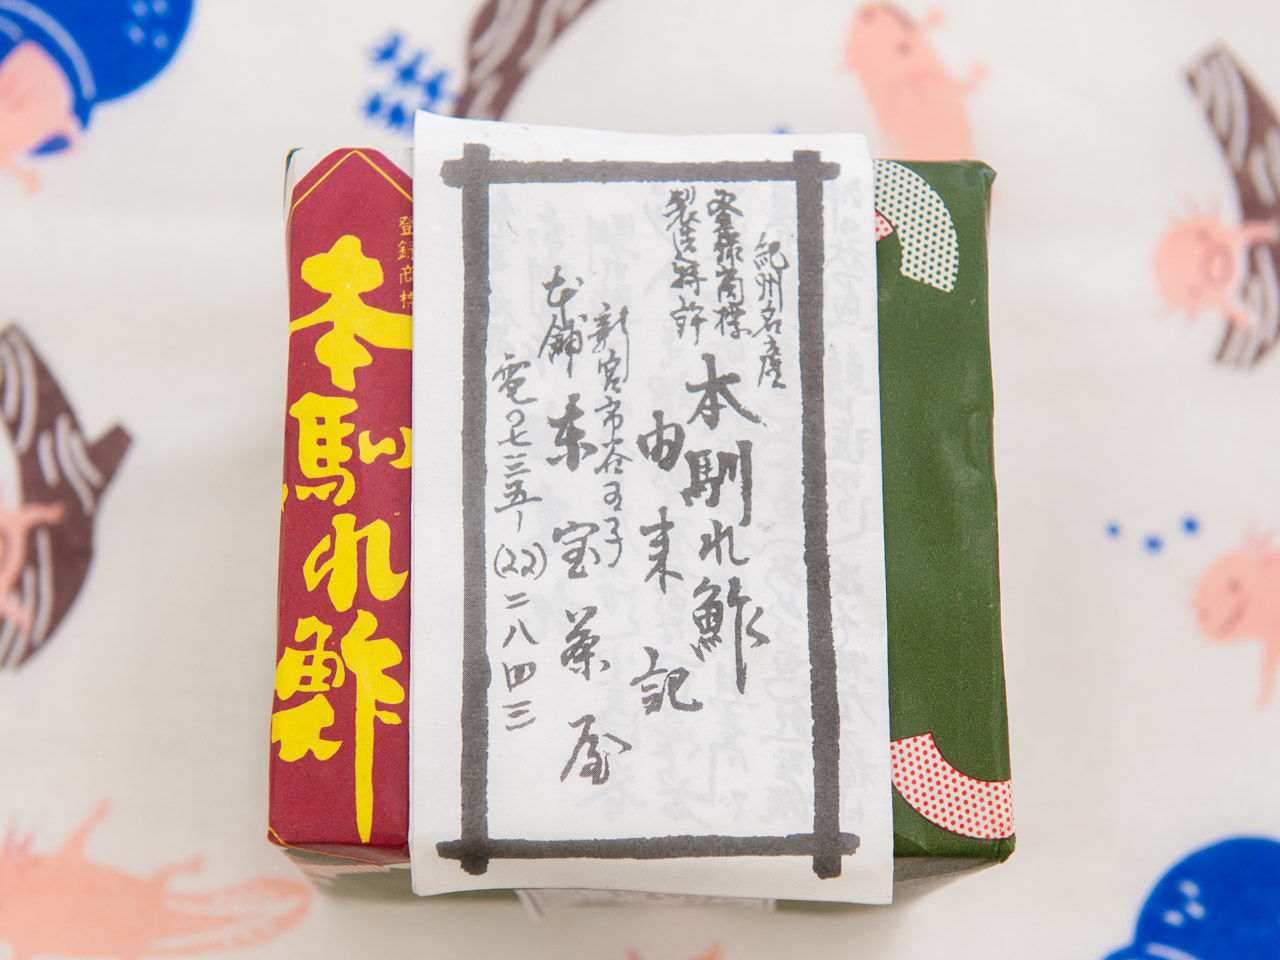 紀州名産
登録商標
製造特許
本馴れ鮓
由来記
新宮市谷王子
本舗 東宝茶屋
電〇七三五ー(22)二八四三
登録商標
本馴れ鮓